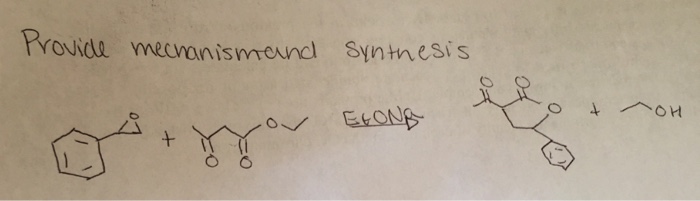 Provide mechanism and synthesis
O + O O O EtONa O O O + OH